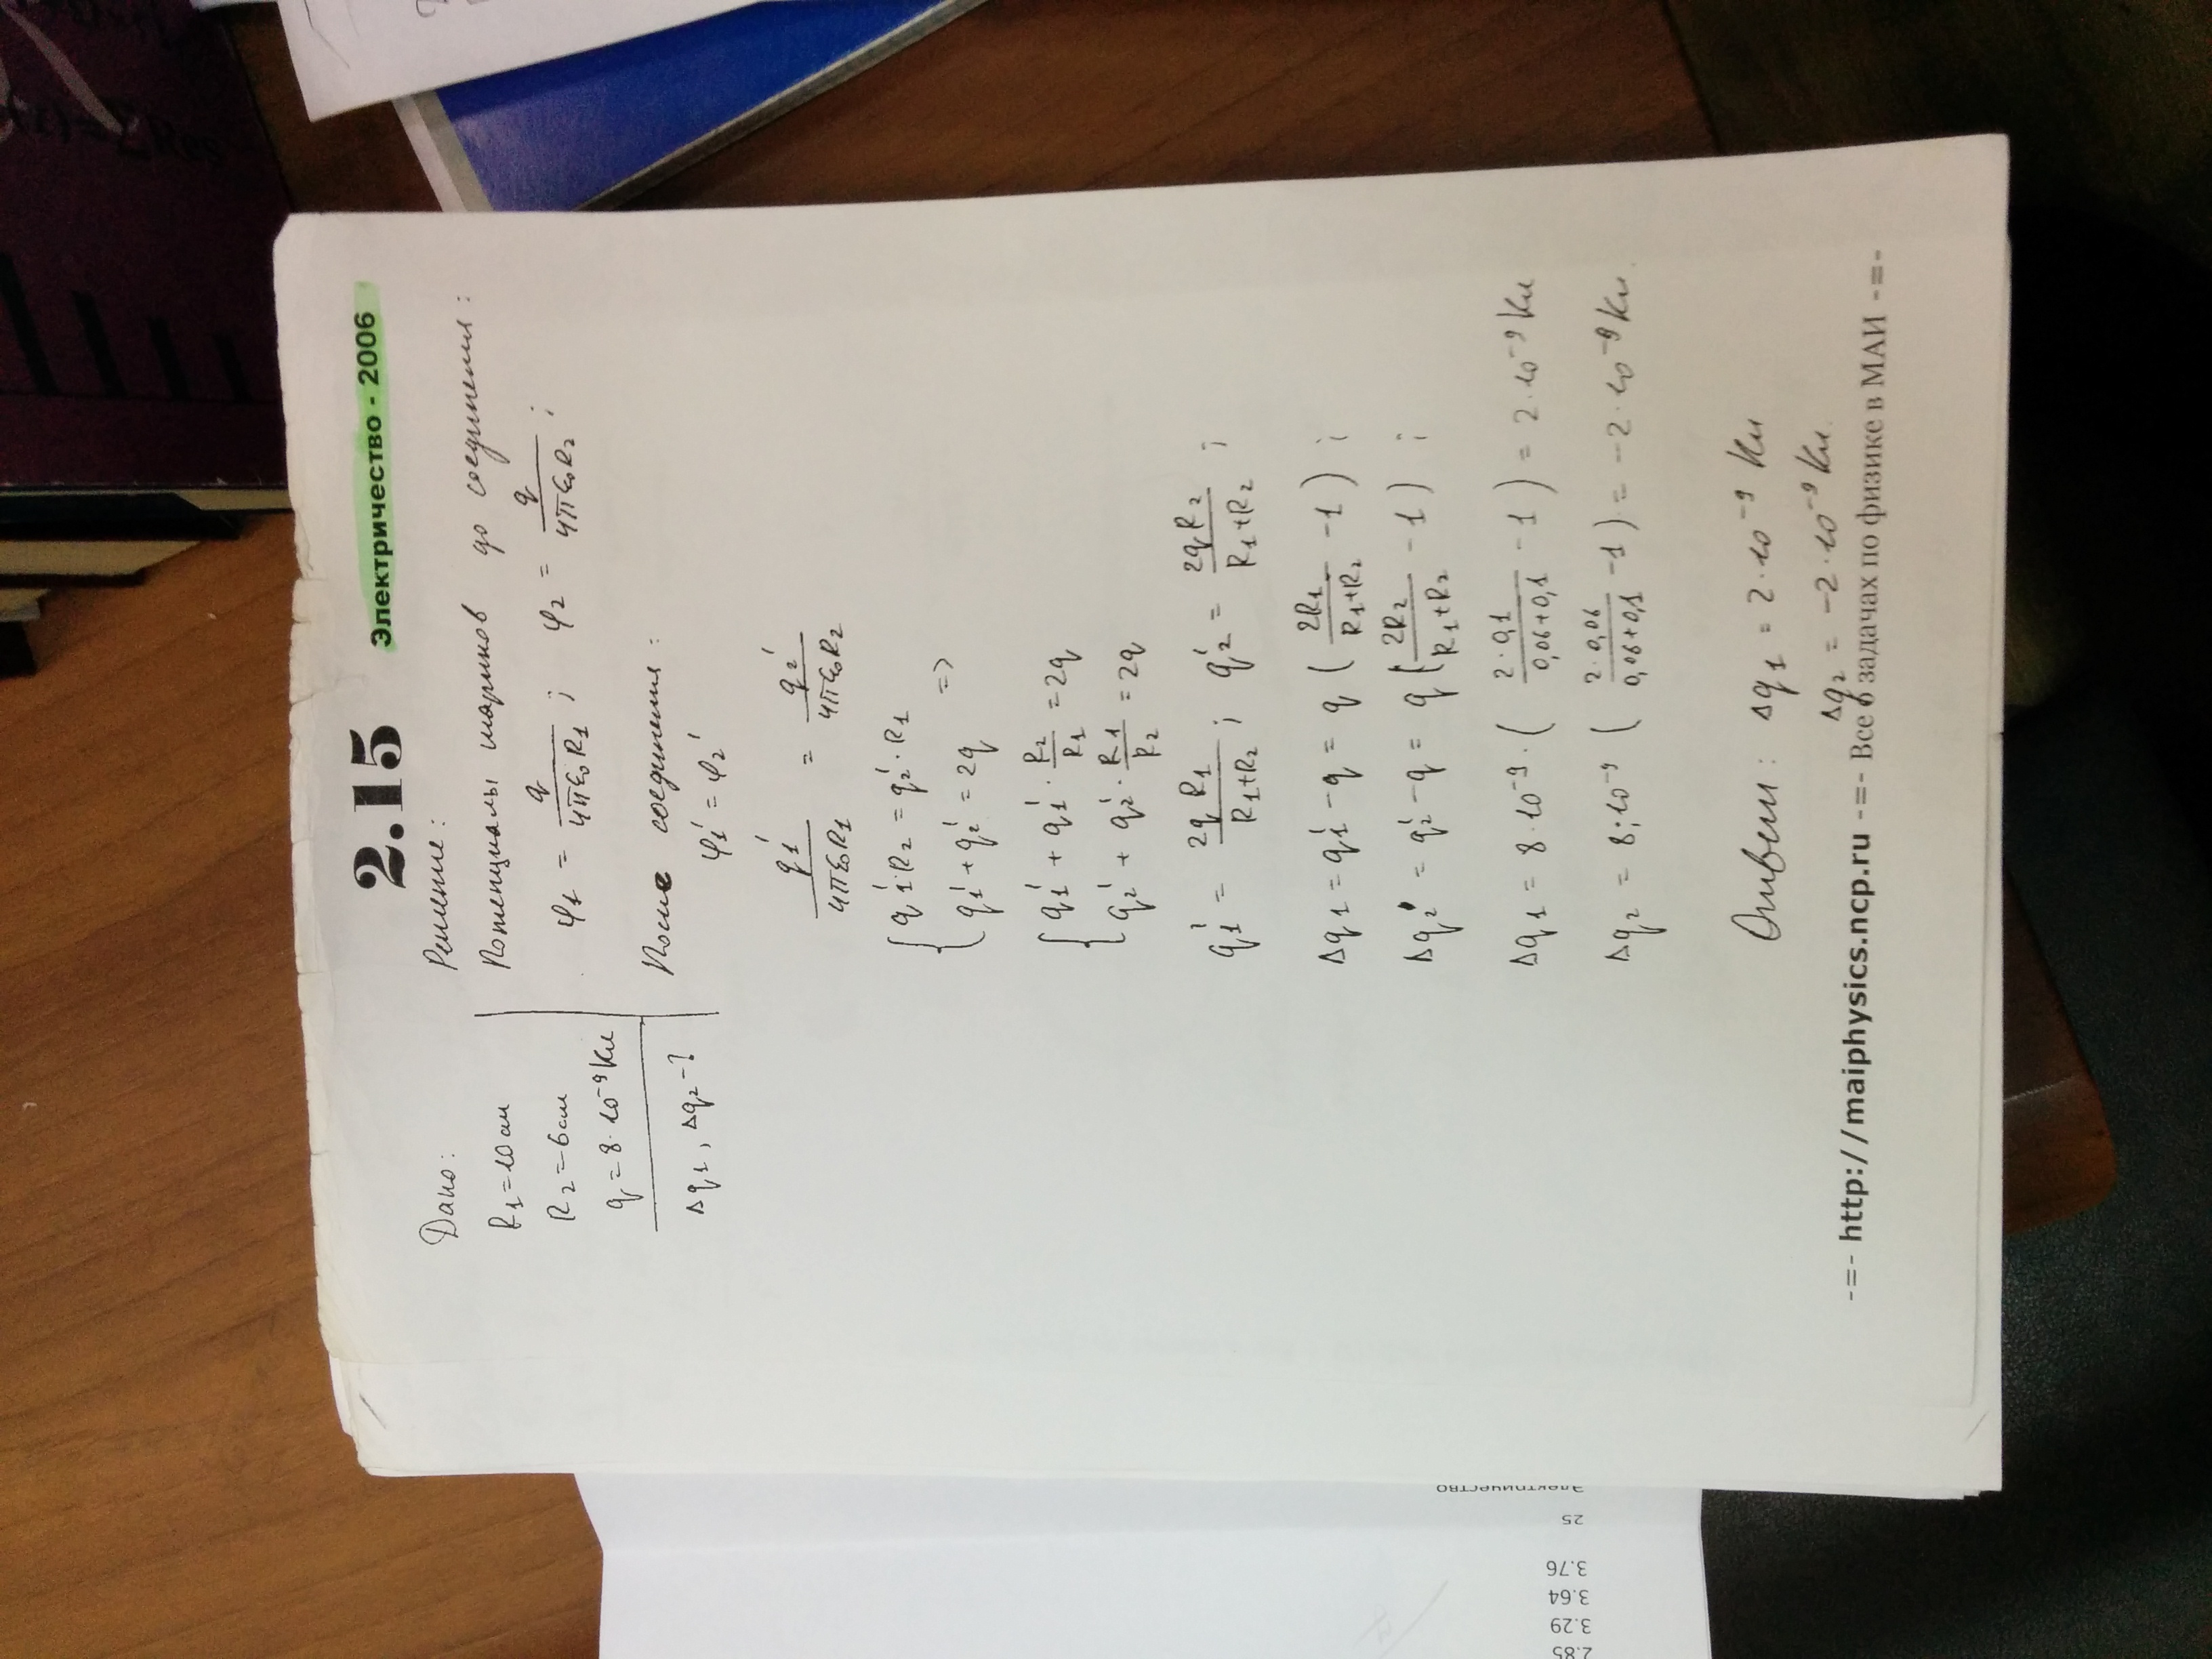 2.15 Электричество - 2006
Дано:
R₁=10см
R₂=6см
q=8·10⁻⁹Кл
Δq₁, Δq₂-?
Решение:
Потенциалы шариков до соединения:
φ₁ = q/(4πε₀R₁) ; φ₂ = q/(4πε₀R₂) ;
После соединения:
φ₁' = φ₂'
q₁'/(4πε₀R₁) = q₂'/(4πε₀R₂)
{ q₁'·R₂ = q₂'·R₁
q₁' + q₂' = 2q =>
{ q₁' + q₁' · R₂/R₁ = 2q
q₂' + q₂' · R₁/R₂ = 2q
q₁' = 2qR₁/(R₁+R₂) ; q₂' = 2qR₂/(R₁+R₂) ;
Δq₁ = q₁' - q = q ( 2R₁/(R₁+R₂) - 1 ) ;
Δq₂ = q₂' - q = q ( 2R₂/(R₁+R₂) - 1 ) ;
Δq₁ = 8·10⁻⁹·( 2·0,1/(0,06+0,1) - 1 ) = 2·10⁻⁹Кл
Δq₂ = 8·10⁻⁹ ( 2·0,06/(0,06+0,1) - 1 ) = -2·10⁻⁹Кл.
Ответ: Δq₁ = 2·10⁻⁹ Кл
Δq₂ = -2·10⁻⁹ Кл.
-=- http://maiphysics.ncp.ru -=- Все о задачах по физике в МАИ -=-
Электричество
25
3.76
3.64
3.29
2.85
∑Res